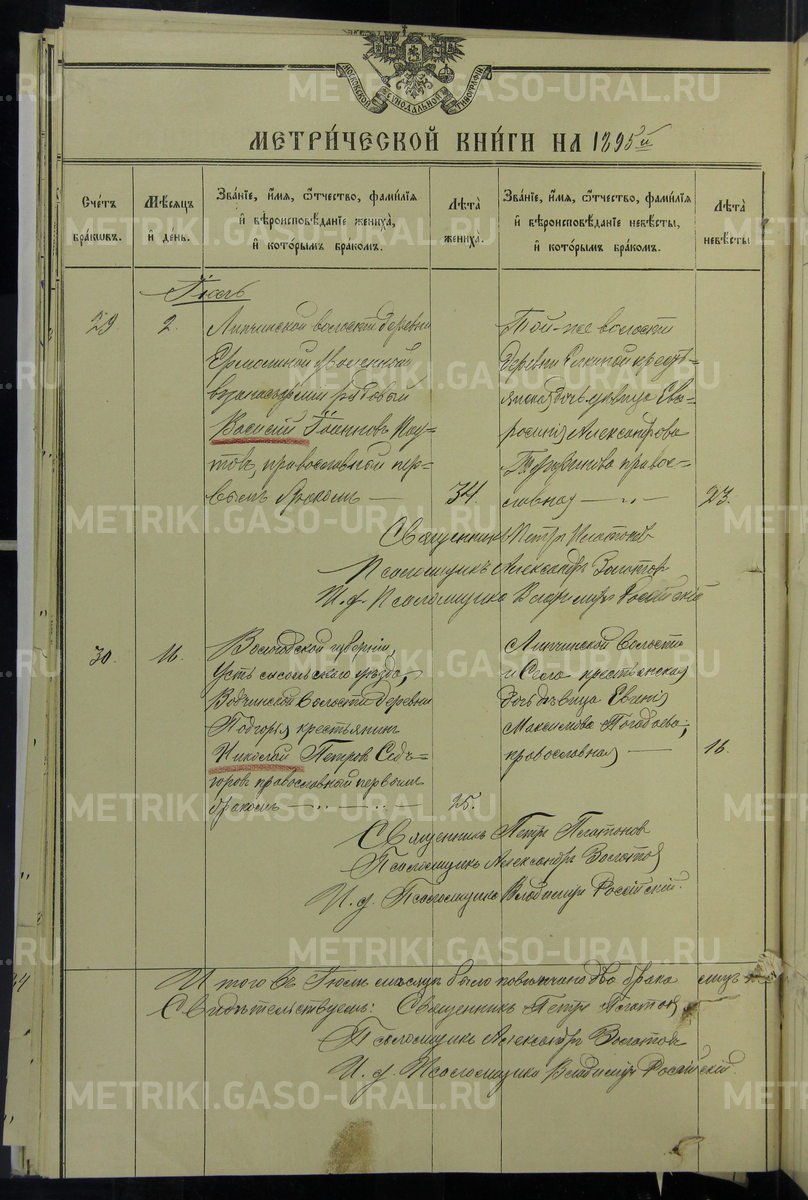 МОСКОВСКОЙ СѴНОДАЛЬНОЙ ТИПОГРАФІИ
МЕТРИ́ЧЕСКОЙ КНИ́ГИ НА 1895й
Сче́тъ бра́кѡвъ.
Мѣ́сяцъ и҆ де́нь.
Зва́нїе, и҆́мѧ, ѻ҆́тчество, фамѝлїѧ и҆ вѣроисповѣ́данїе жениха̀, и҆ кото́рымъ бра́комъ.
Лѣ́та жениха̀.
Зва́нїе, и҆́мѧ, ѻ҆́тчество, фамѝлїѧ и҆ вѣроисповѣ́данїе невѣ́сты, и҆ кото́рымъ бра́комъ.
Лѣ́та невѣ́сты
Іюль
29
2.
Липчинской волости деревни
рядовой
Василій Іоанновъ
православный пер-
вымъ бракомъ
34.
Той-же волости
деревни кресть-
дочь дѣвица Ев
Александрова
правос-
славная
23.
Священникъ Петръ Платоновъ
Псаломщикъ Александръ Золотовъ
И. д. Псаломщика Владиміръ Россійскій
30.
16.
Вологодской губерніи,
Усть сысольскаго уѣзда,
Вотчинской волости деревни
Подгорья крестьянинъ
Николай Петровъ
православный первымъ
бракомъ
25.
Липчинской волости
и Села крестьянская
дочь дѣвица Евгенія
Максимова Погадаева,
православная
16.
Священникъ Петръ Платоновъ
Псаломщикъ Александръ Золотовъ
И. д. Псаломщика Владиміръ Россійскій.
34
Итого въ Іюлѣ мѣсяцѣ было повѣнчано два брака
Свидѣтельствуемъ: Священникъ Петръ Платоновъ
Псаломщикъ Александръ Золотовъ
И. д. Псаломщика Владиміръ Россійскій.
METRIKI.GASO-URAL.RU